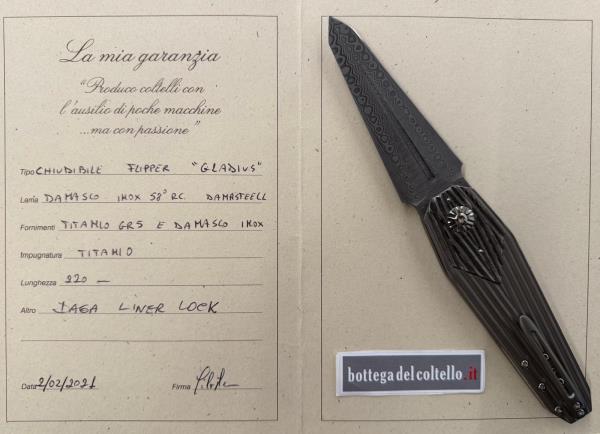 La mia garanzia
"Produco coltelli con
l'ausilio di poche macchine
...ma con passione"
Tipo CHIUDIBILE FLIPPER "GLADIUS"
Lama DAMASCO INOX 58° RC. DAMASTEELL
Fornimenti TITANIO GR5 E DAMASCO INOX
Impugnatura TITANIO
Lunghezza 220 —
Altro IAGA LINER LOCK
Data 2/02/2021 Firma
bottega del coltello.it